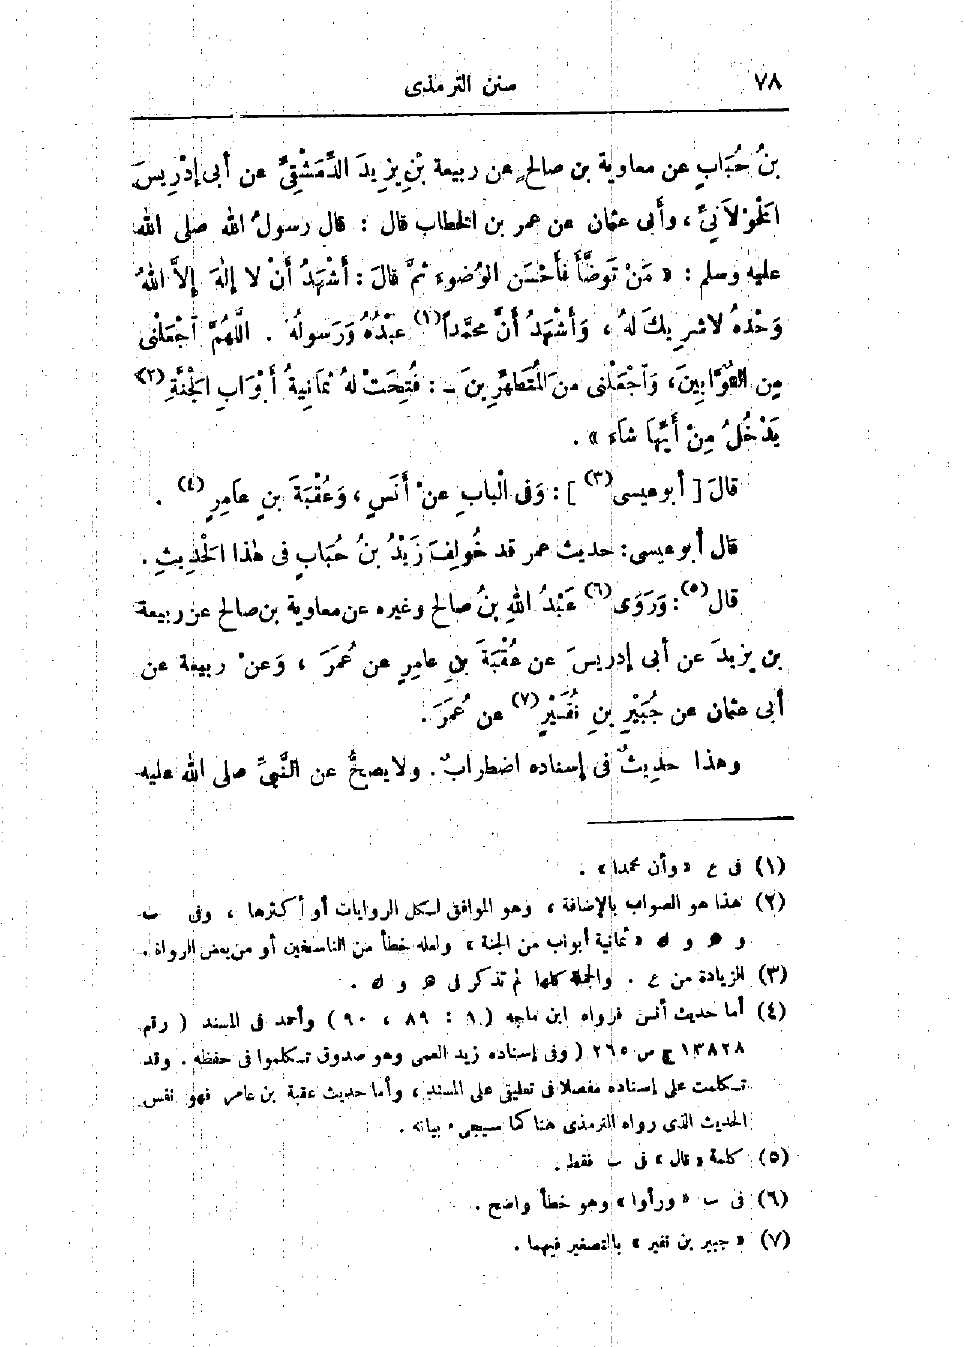 ٧٨
سنن الترمذى
بنُ حُبَابٍ عن معاوية بن صالحٍ عن ربيعة بْنِ يزيدَ الدِّمَشْقِيِّ عن أبى إدْرِيسَ
الَخْوْلاَنِيِّ ، وأبى عثمان عن عمر بن الخطاب قال : قال رسولُ الله صلى الله
عليه وسلم : « مَنْ تَوَضَّأَ فَأَحْسَن الوُضوءَ ثمَّ قالَ : أَشْهَدُ أَنْ لا إلهَ إلاَّ اللهُ
وَحْدهُ لاشريكَ لهُ ، وَأشْهَدُ أَنَّ محمَّداً(١) عبْدُهُ وَرَسولُهُ . اللّهُمَّ آجْعَلْنى
مِن التَّوَّابِينَ ، وَآجْعَلْنى منَ المُتَطَهِّرِينَ ـ : فُتِحَتْ لهُ ثمانيةُ أبْوَابِ الَجْنَّةِ(٢)
يَدْخُلُ مِنْ أَيِّهَا شاءَ » .
قالَ [ أبو عيسى(٣) ] : وَفى الْبابِ عنْ أَنَسٍ ، وَعُقْبَةَ بنِ عامِرٍ(٤) .
قال أبو عيسى : حديث عمر قد خُولِفَ زَيْدُ بنُ حُبَابٍ فى هذا الَحْدِيثِ .
قال(٥) : وَرَوَى(٦) عَبْدُ اللهِ بنُ صالح وغيره عن معاوية بن صالح عن ربيعة
بن يزيدَ عن أبى إدريسَ عن عُقْبَةَ بنِ عامِرٍ عن عُمَرَ ، وَعنْ ربيعة عن
أبى عثمان عن جُبَيْرِ بنِ نُفَيْرٍ(٧) عن عُمَرَ .
وهذا حديثٌ فى إسناده اضطرابٌ . ولا يصحُّ عن النَّبِيِّ صلى الله عليه
(١) فى ع « وأن محمدا » .
(٢) هذا هو الصواب بالإضافة ، وهو الموافق لكل الروايات أو أكثرها ، وفى ب
و ھ و ك « ثمانية أبواب من الجنة » ولعله خطأ من الناسخين أو من بعض الرواة .
(٣) الزيادة من ع . والجملة كلها لم تذكر فى ھ و ك .
(٤) أما حديث أنس فرواه ابن ماجه ( ١ : ٨٩ ، ٩٠ ) وأحمد فى المسند ( رقم
١٣٨٢٨ ج ٣ ص ٢٦٥ ) وفى إسناده زيد العمى وهو صدوق تكلموا فى حفظه . وقد
تكلمت على إسناده مفصلا فى تعليقى على المسند ، وأما حديث عقبة بن عامر فهو نفس
الحديث الذى رواه الترمذى هنا كما سيجىء بيانه .
(٥) كلمة « قال » فى ب فقط .
(٦) فى ب « ورأوا » وهو خطأ واضح .
(٧) « جبير بن نفير » بالتصغير فيهما .